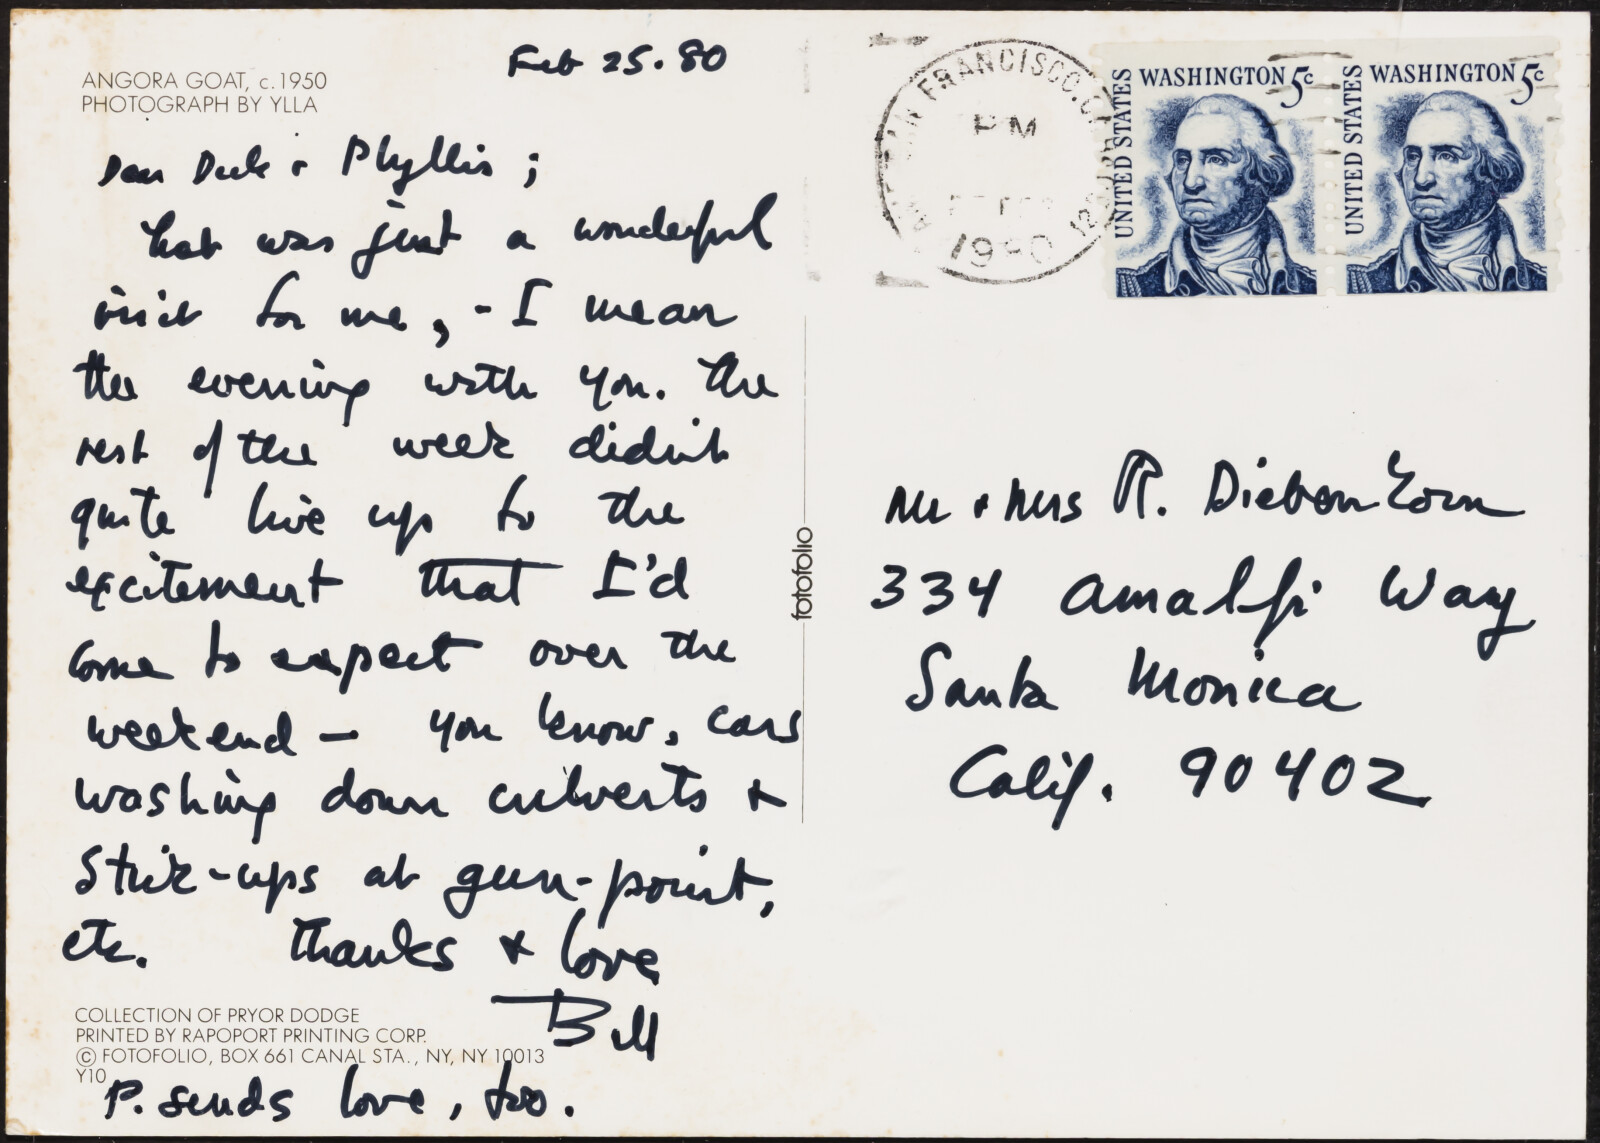 ANGORA GOAT, c.1950
PHOTOGRAPH BY YLLA
Feb 25. 80
Dear Dick + Phyllis;
that was just a wonderful
visit for me, - I mean
the evening with you. The
rest of the week didn't
quite live up to the
excitement that I'd
come to expect over the
weekend — you know, cars
washing down culverts +
stick-ups at gun-point,
etc. Thanks + love
Bill
COLLECTION OF PRYOR DODGE
PRINTED BY RAPOPORT PRINTING CORP.
© FOTOFOLIO, BOX 661 CANAL STA., NY, NY 10013
Y10
P. sends love, too.
fotofolio
SAN FRANCISCO, CA
PM
1980
UNITED STATES WASHINGTON 5c
UNITED STATES WASHINGTON 5c
Mr + Mrs R. Diebenkorn
334 Amalfi Way
Santa Monica
Calif. 90402